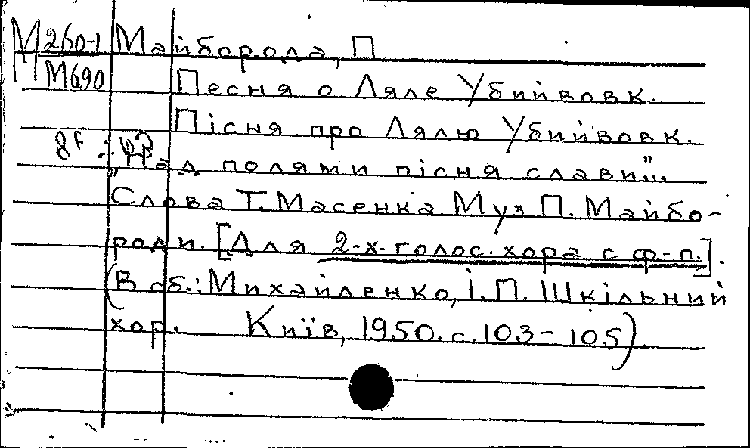 М260-1 Майборода, П
П М690 Песня о Ляле Убийвовк.
Пісня про Лялю Убийвовк.
8f
"Над полями пісня слави"...
Слова Т. Масенка Муз П. Майбо-
роди. [Для 2-х-голос. хора с ф-п.].
(В сб.: Михайленко, І. П. Шкільний
хор. Київ, 1950. с. 103-105)